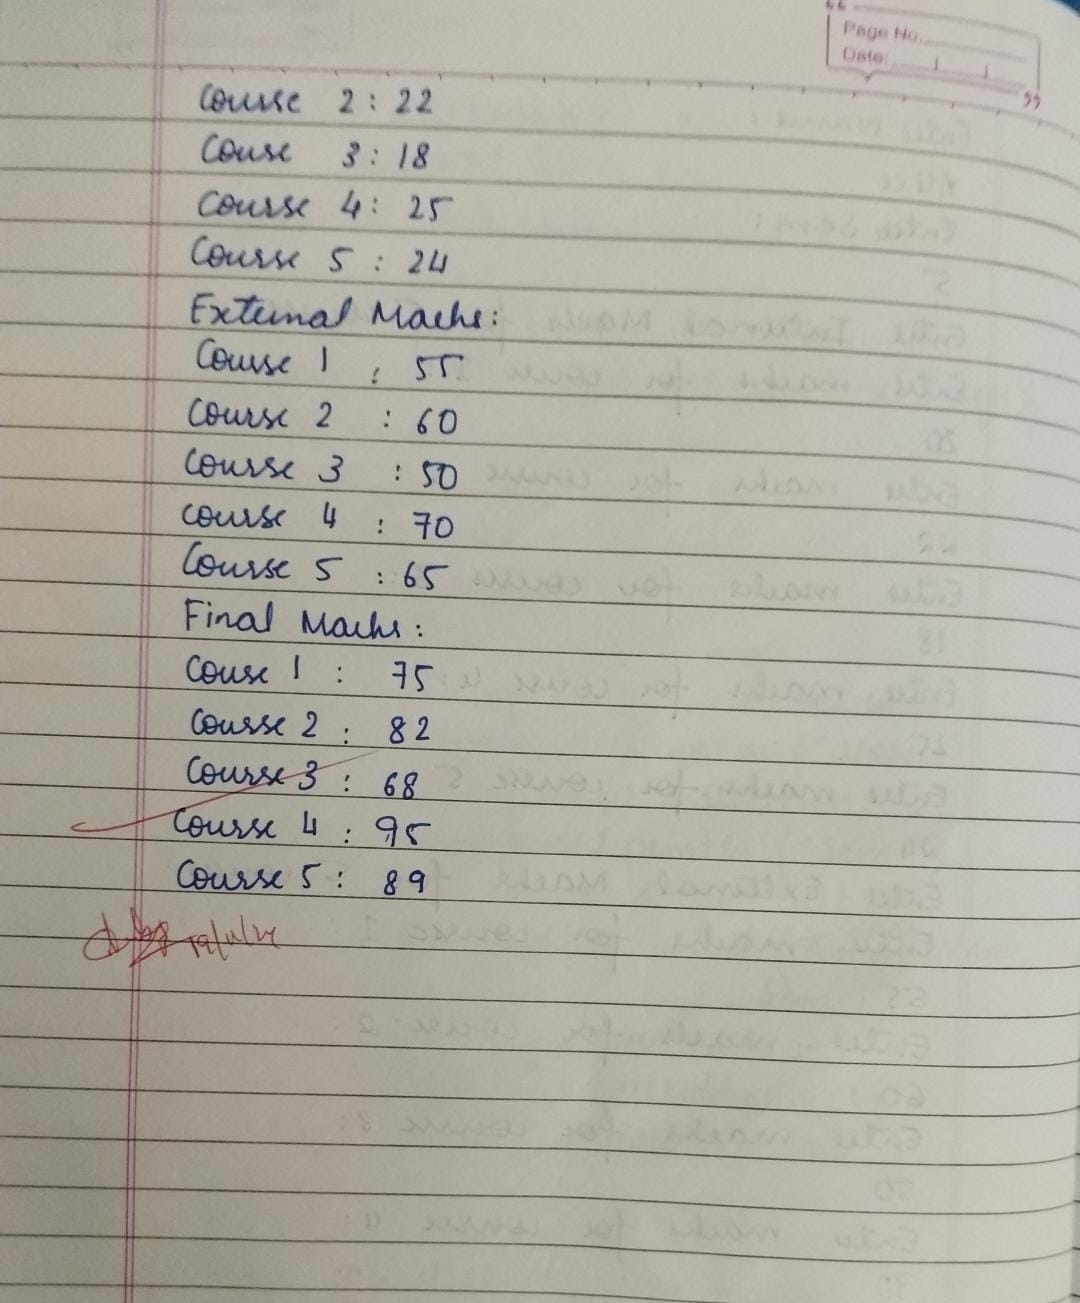 Page No.
Date:
Course 2 : 22
Couse 3 : 18
Course 4 : 25
Course 5 : 24
External Marks:
Course 1 : 55
Course 2 : 60
Course 3 : 50
Course 4 : 70
Course 5 : 65
Final Marks:
Couse 1 : 75
Course 2 : 82
Course 3 : 68
Course 4 : 95
Course 5 : 89